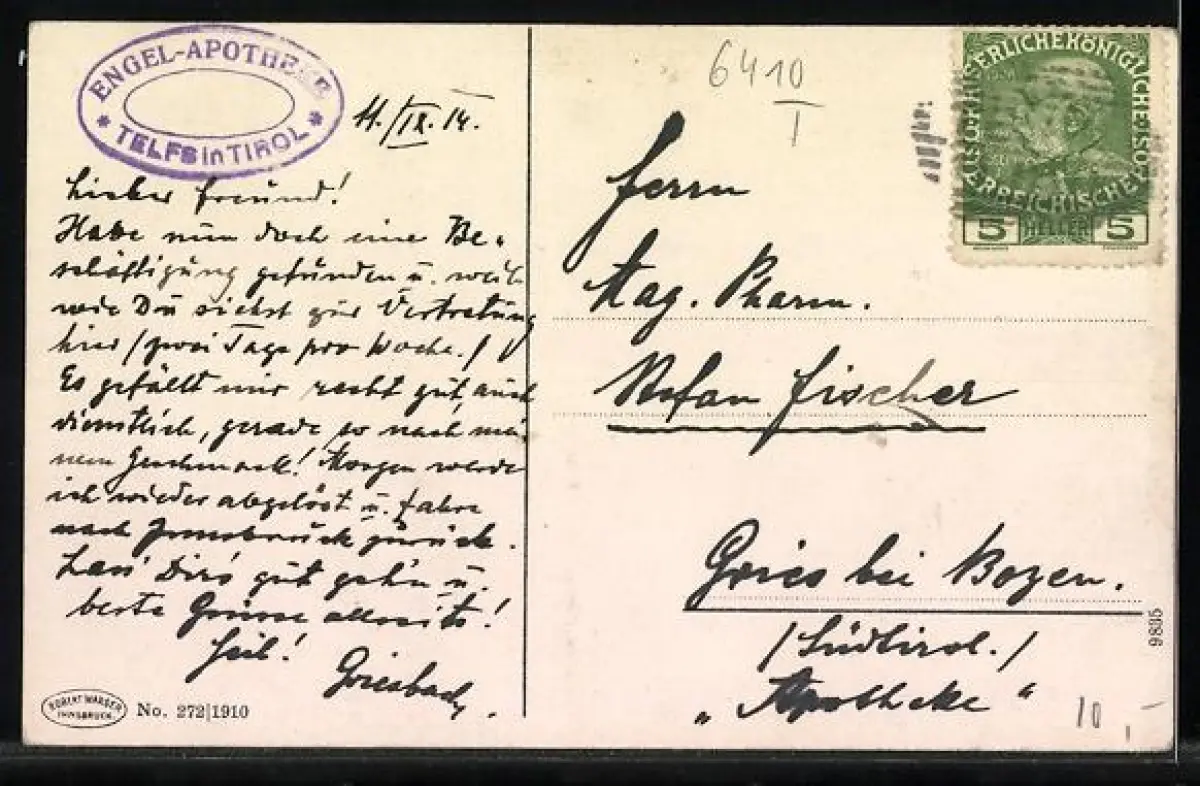 ENGEL-APOTHEKE
* TELFS in TIROL *
11./IX. 14.
Lieber Freund!
Habe nun doch eine Be-
schäftigung gefunden u. weile
wie Du siehst zur Vertretung
hier / zwei Tage pro Woche. /
Es gefällt mir recht gut, auch
dienstlich, gerade so nach mei
nem Geschmack! Morgen werde
ich wieder abgelöst u. fahre
nach Innsbruck zurück.
Lass' Dir's gut geh'n u.
beste Grüsse allseits!
Heil!
Griesbach.
ROBERT WARGER
INNSBRUCK.
No. 272|1910
6410
I
KAISERLICHE KÖNIGLICHE ÖSTERREICHISCHE POST
5 HELLER 5
Herrn
Mag. Pharm.
Stefan Fischer
Gries bei Bozen.
/Südtirol./
„Apotheke"
9835
10,-